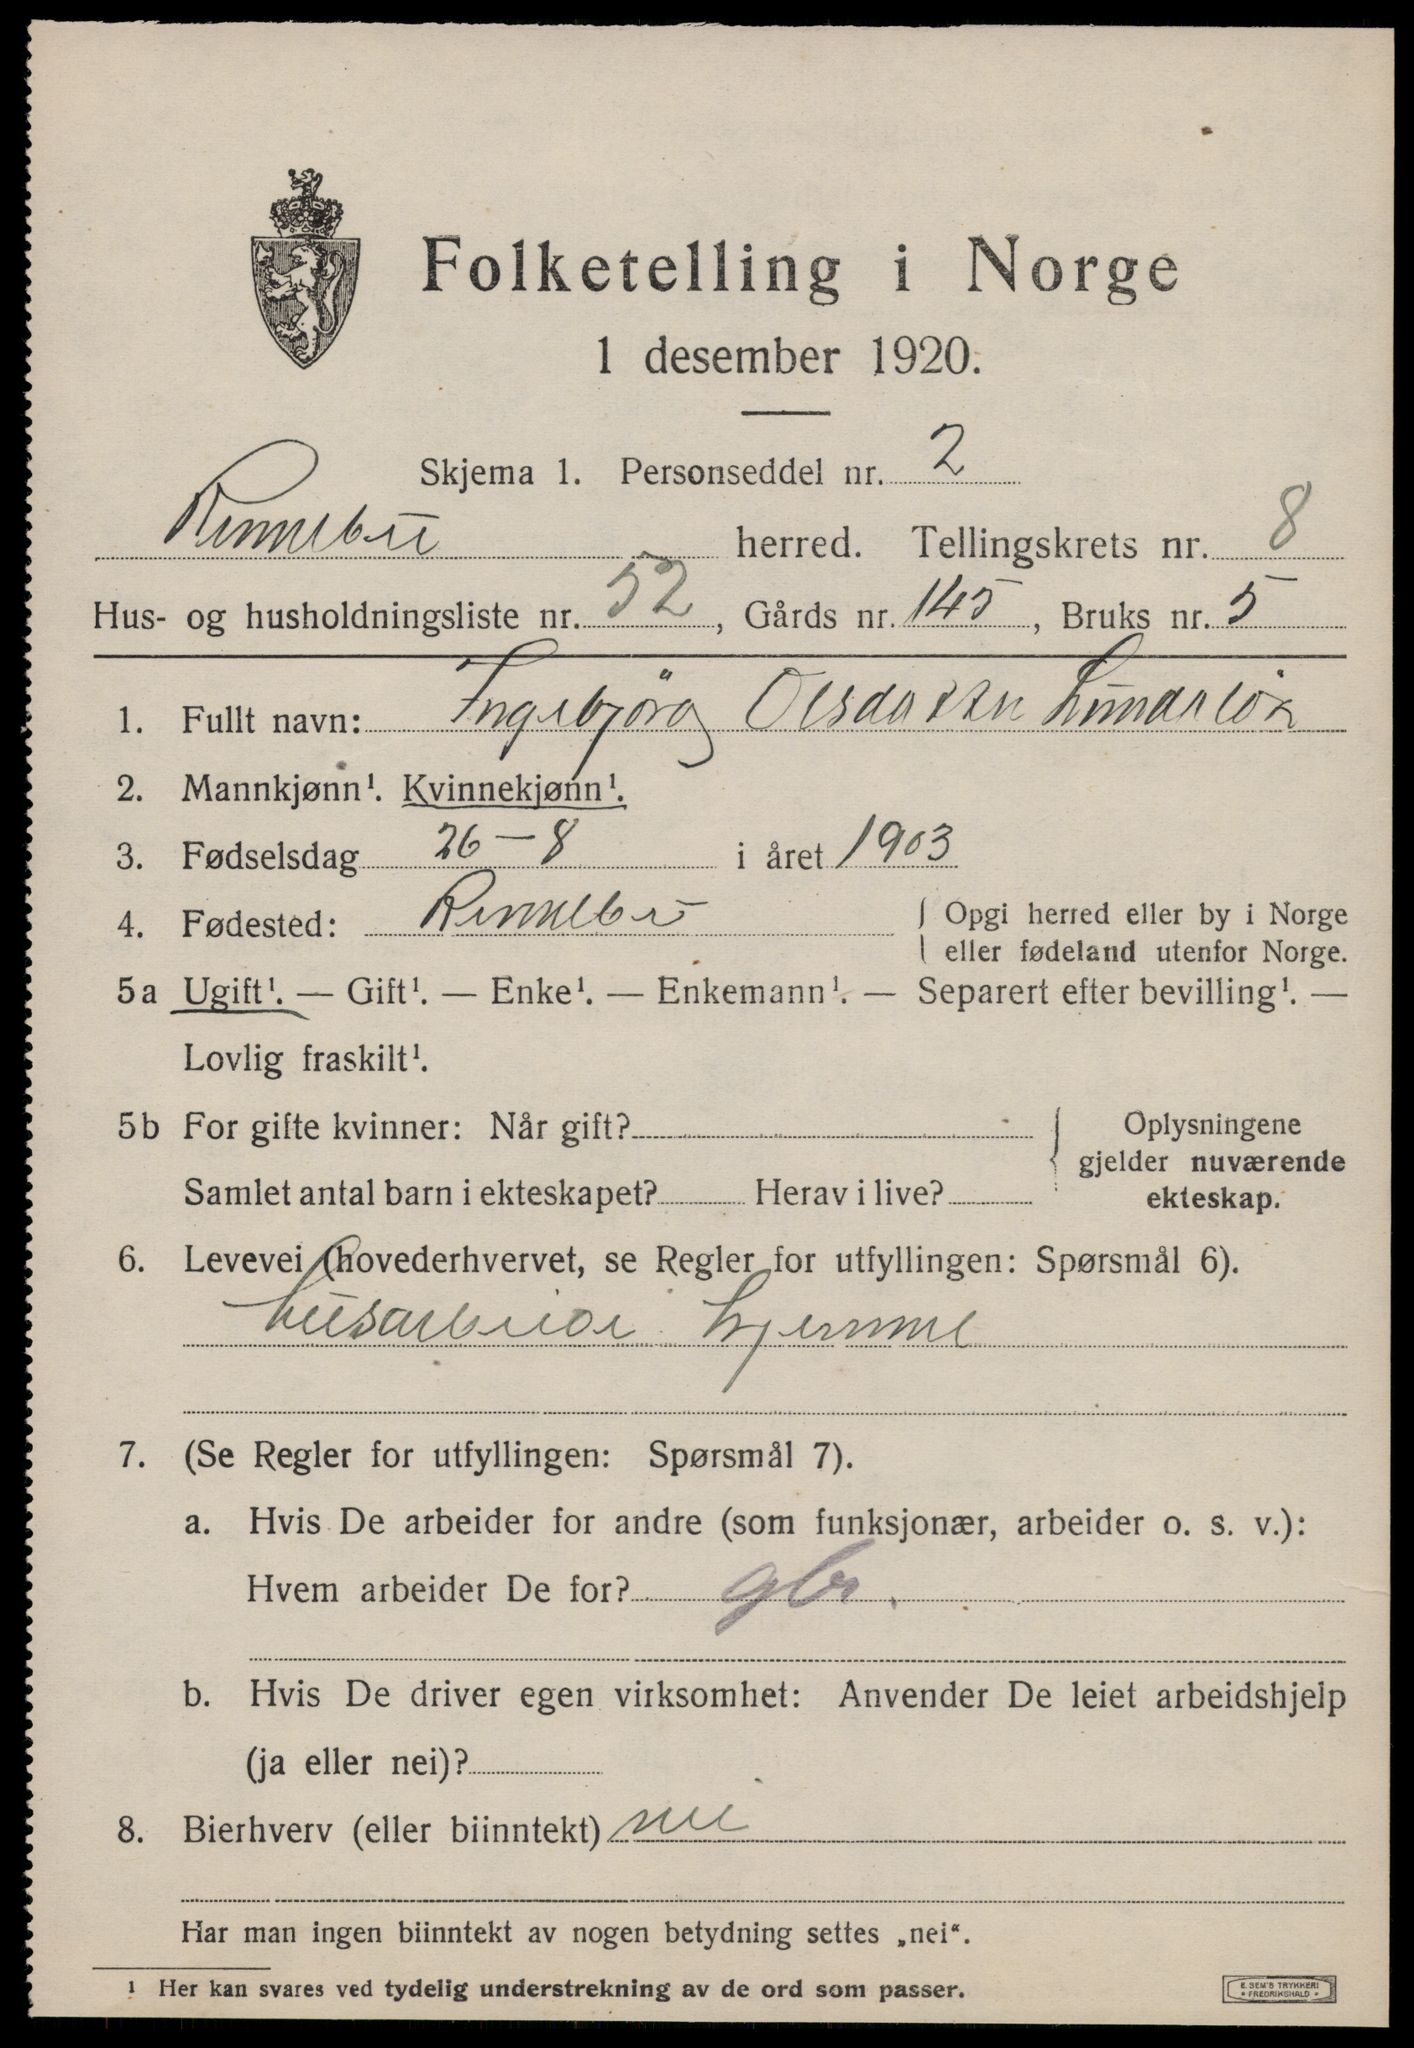 Folketelling i Norge
1 desember 1920.
Skjema 1. Personseddel nr. 2
Rennebu herred. Tellingskrets nr. 8
Hus- og husholdningsliste nr. 52, Gårds nr. 145, Bruks nr. 5
1. Fullt navn: Ingebjörg Olsdatter
2. Mannkjønn¹. Kvinnekjønn¹.
3. Fødselsdag 26-8 i året 1903
4. Fødested: Rennebu { Opgi herred eller by i Norge
eller fødeland utenfor Norge.
5a Ugift¹. — Gift¹. — Enke¹. — Enkemann¹. — Separert efter bevilling¹. —
Lovlig fraskilt¹.
5b For gifte kvinner: Når gift?
Samlet antal barn i ekteskapet? Herav i live?
{ Oplysningene
gjelder nuværende
ekteskap.
6. Levevei (hovederhvervet, se Regler for utfyllingen: Spørsmål 6).
husarbeide hjemme
7. (Se Regler for utfyllingen: Spørsmål 7).
a. Hvis De arbeider for andre (som funksjonær, arbeider o. s. v.):
Hvem arbeider De for? gbr.
b. Hvis De driver egen virksomhet: Anvender De leiet arbeidshjelp
(ja eller nei)?
8. Bierhverv (eller biinntekt) nei
Har man ingen biinntekt av nogen betydning settes „nei“.
¹ Her kan svares ved tydelig understrekning av de ord som passer.
E. SEM'S TRYKKERI
• FREDRIKSHALD •